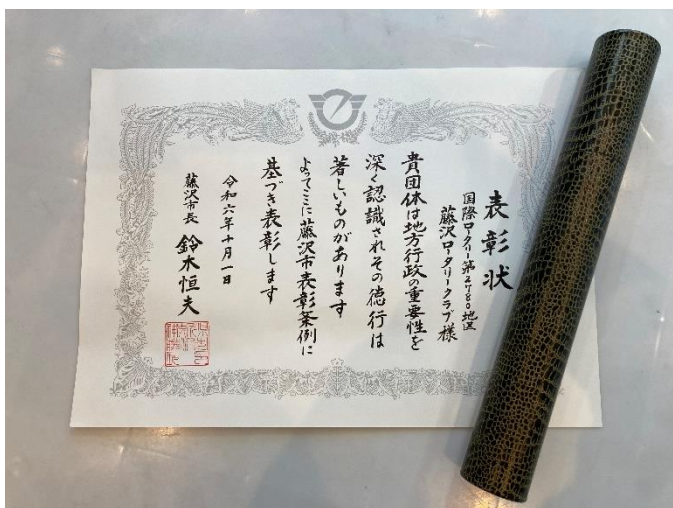 表彰状
国際ロータリー第2780地区
藤沢ロータリークラブ様
貴団体は地方行政の重要性を
深く認識されその徳行は
著しいものがあります
よってここに藤沢市表彰条例に
基づき表彰します
令和六年十月一日
藤沢市長 鈴木恒夫